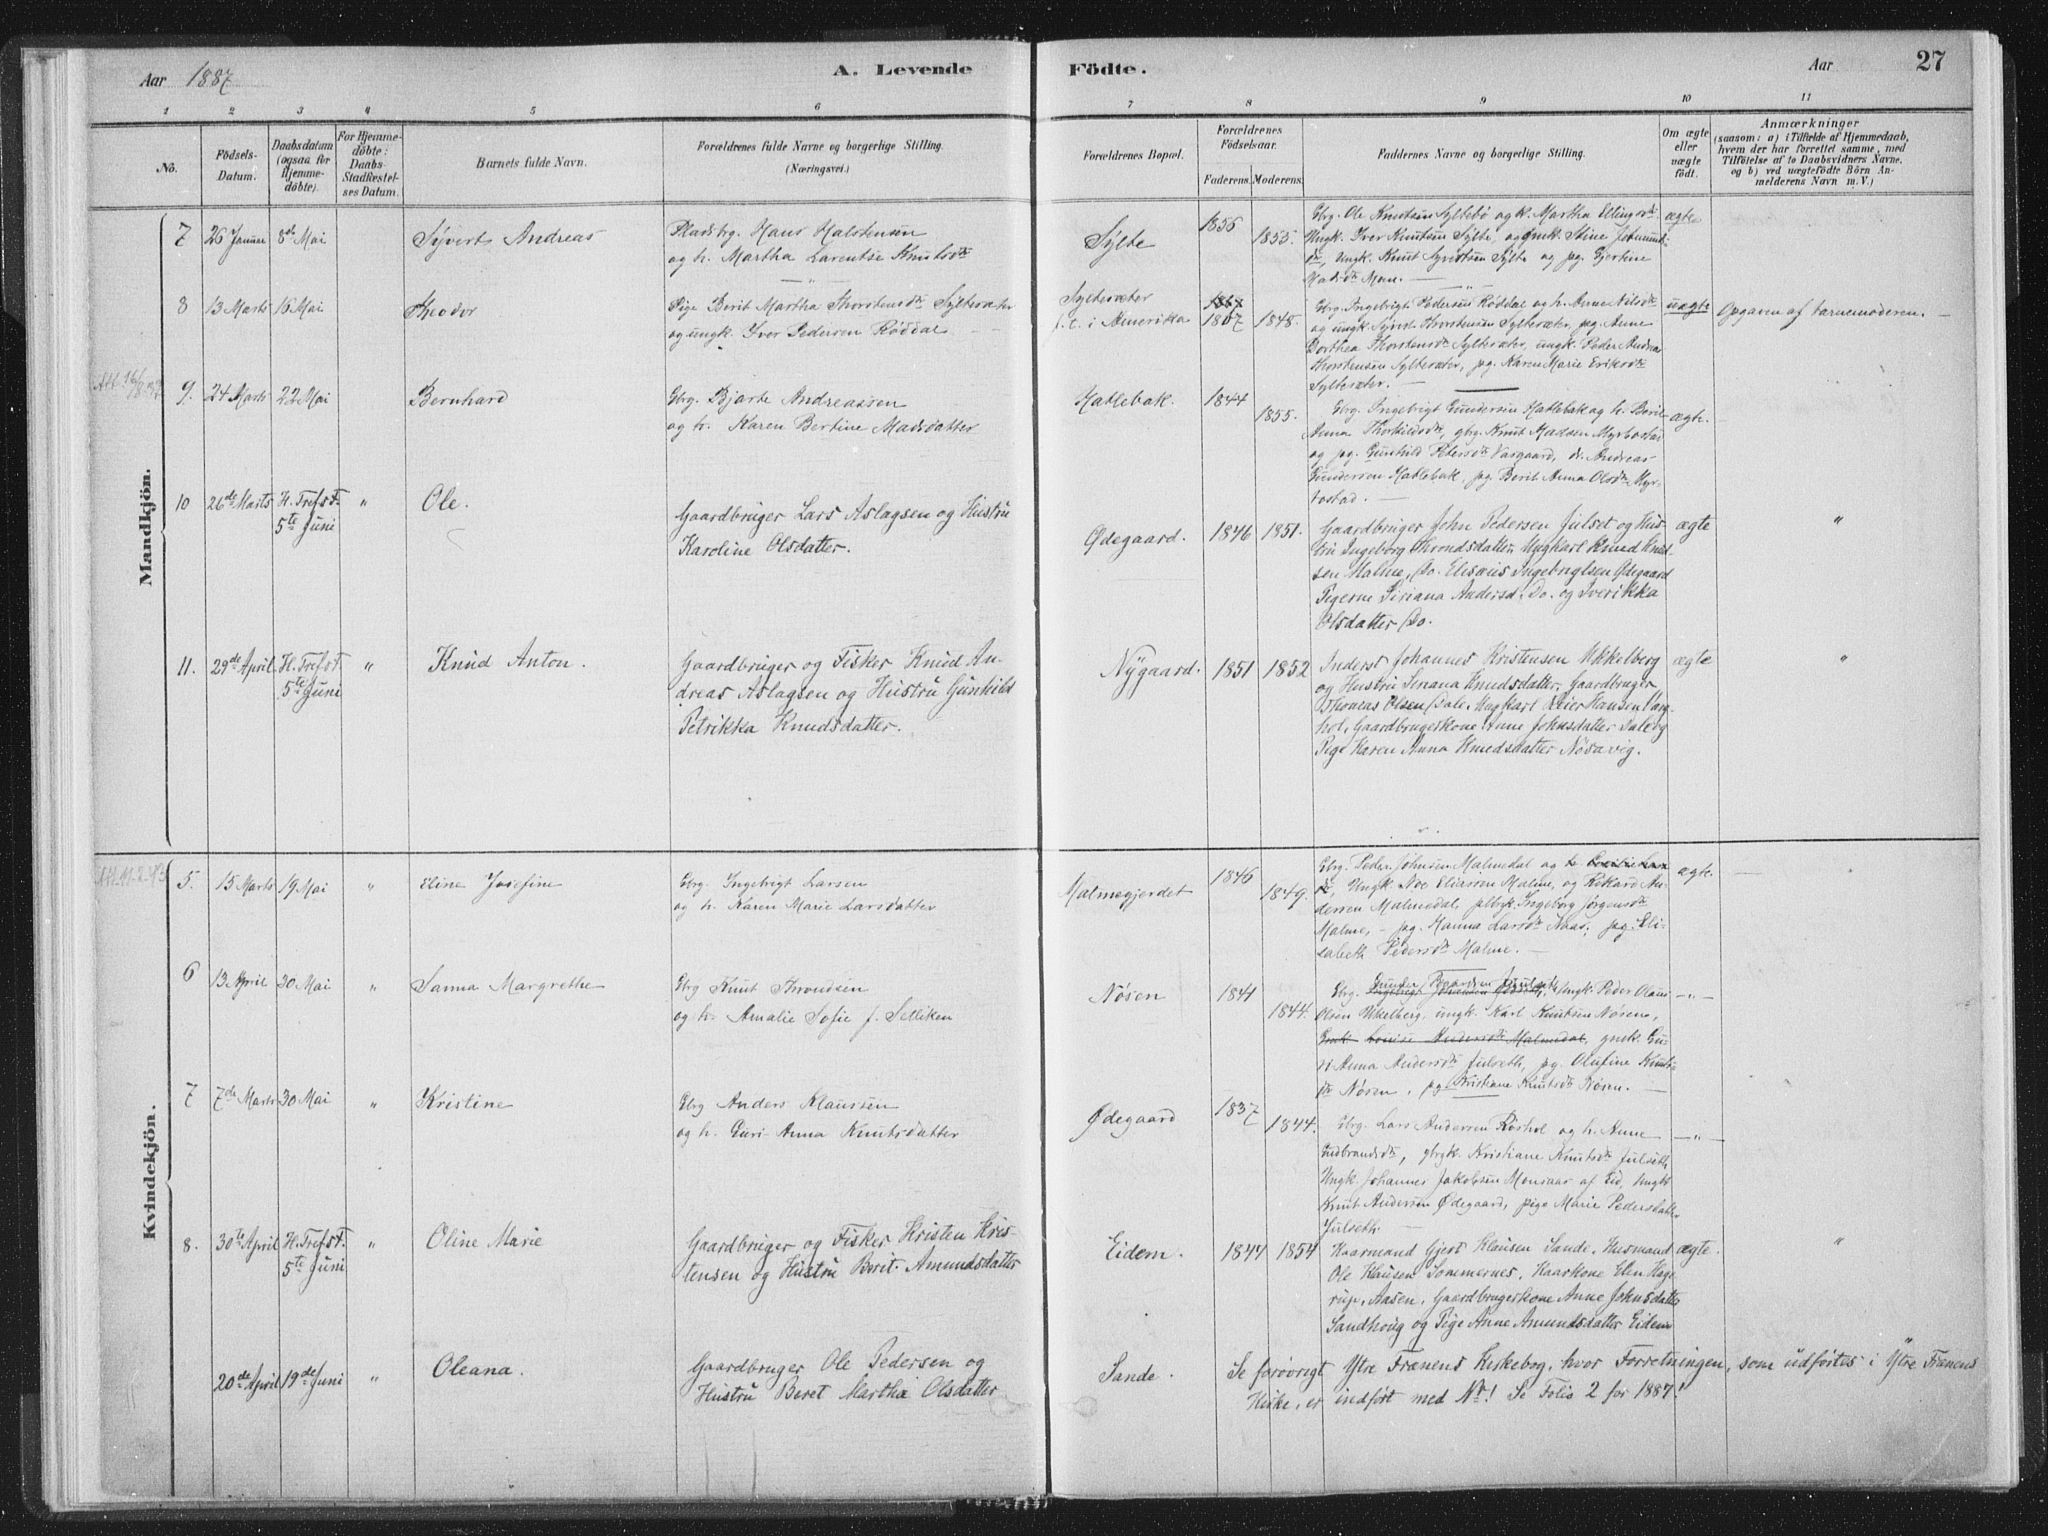 Aar 1887
A. Levende
Födte.
Aar
27
1 2 3 4 5 6 7 8 9 10 11
No.
Födsels-
Datum.
Daabsdatum
(ogsaa for
Hjemme-
döbte).
For Hjemme-
döbte:
Daabs-
Stadfestel-
ses Datum.
Barnets fulde Navn.
Forældrenes fulde Navne og borgerlige Stilling.
(Næringsvei.)
Forældrenes Bopæl.
Forældrenes
Födselsaar.
Faderens. Moderens.
Faddernes Navne og borgerlige Stilling.
Om ægte
eller
uægte
födt.
Anmærkninger
(saasom: a) i Tilfælde af Hjemmedaab,
hvem der har forrettet samme, med
Tilföielse af to Daabsvidners Navne,
og b) ved uægtefödte Börn An-
melderens Navn m. V.)
Mandkjön.
7 26 Januar 8de Mai
Syvert Andreas
Pladsbrg. Hans Halstensen
og h. Martha Larentse Knutsdtr
Sylte
1856 1855.
Gbrg. Ole Knutsen Syltebö og k. Martha Ellingsdtr
Ungk. Iver Knutsen Sylte, og Stine
Ungk. Knut Syvertsen Sylte og pg. Gjertine
Madsdtr Moen.
ægte
8 13 Marts 16 Mai
Theodor
Pige Berit Martha Thorstensdtr Sylteseter
og ungk. Iver Pedersen Röddal
Sylteseter
f. t. i Amerika
1867
1848.
Gbrg. Ingebrigt Pedersen Röddal og h. Anne Nilsdtr
og ungk. Syvert Thorstensen Sylteseter, pg. Anne
Dorthea Thorstensdtr Sylteseter, ungk. Peder Andreas
Thorstensen Sylteseter, pg. Karen Marie Eriksdtr
Sylteseter.
uægte
Opgaven af barnemoderen.
9. 24 Marts 22 Mai
Bernhard
Gbrg. Bjarte Andreassen
og h. Karen Bertine Madsdatter
Hatlebak.
1844
1855.
Gbrg. Ingebrigt Gundersen Hatlebak og h. Berit
Anna Thorkildsdtr, gbrg. Knut Madsen Myrbostad
og pg. Gunhild Petersdtr Vasgaard, dr. Andreas
Gundersen Hatlebak, pg. Berit Anna Olsdtr Myr-
bostad.
ægte.
10 26de Marts H. Trefs F. 5te Juni "
Ole.
Gaardbruger Lars Aslagsen og Hustru
Karoline Olsdatter.
Ødegaard.
1846 1851.
Gaardbruger John Pedersen Julset og Hus-
tru Ingeborg Throndsdatter, Ungkarl Knud Knud-
sen Malme, Do. Elisæus Ingebrigtsen Ødegaard
Pigerne Siriana Andersd. Do. og Iverikka
Olsdatter Do.
ægte "
11. 29de April H. Trefs F. 5te Juni "
Knud Anton.
Gaardbruger og Fisker Knud An-
dreas Aslagsen og Hustru Gunhild
Petrikka Knudsdatter.
Nygaard.
1851 1852
Inderst Johannes Kristensen Ukkelberg
og Hustru Seriana Knudsdatter, Gaardbruger
Thomas Olsen Dale, Ungkarl Peier Hansen
hol, Gaardbrugerkone Anne Johnsdatter Dale og
Pige Karen Anna Knudsdatter Nösavig.
ægte "
Kvindekjön.
5. 15 Marts 19 Mai "
Eline Josefine
Gbrg. Ingebrigt Larsen
og h. Karen Marie Larsdatter
Malmegjerdet
1846
1849.
Gbrg. Peder Johnsen Malmedal og
Ungk. Noe Eliassen Malme, og Rikard An-
dersen Malmedal, Ingeborg Jörgensdtr
Malme, – pg. Hanna Larsdtr Naas, pg. Eli-
sabeth Pedersdtr Malme.
ægte.
6 13 April 30 Mai "
Sanna Margrethe
Gbrg Knut Throndsen
og h. Amalie Sofie f. Selliken
Nösen
1841
1844.
Gbrg. Ungk. Peder Olaus
Olsen Ukkelberg, ungk. Karl Knutsen Nösen,
Gmk Louise Andersdtr Malmedal, gmk. Gu-
ri Anna Andersdtr Julseth, pg. Olufine Knuts-
dtr Nösen, pg Kristiane Knutsdtr Nösen.
–"–
7 7de Marts 30 Mai "
Kristine
Gbrg Anders Klausen
og h. Guri Anna Knutsdatter
Ødegaard
1837
1844.
Gbrg. Lars Andersen Röshol og h. Anne
Gudbrandsdtr, gbrgk. Kristiane Knutsdtr Julseth,
Ungk. Johannes Jakobsen Monsaas af Eid, Ungk.
Knut Andersen Ødegaard, pige Marie Pedersdatter
Julseth.
–"–
8. 30te April H. Trefs F. 5te Juni "
Oline Marie
Gaardbruger og Fisker Kristen Kris-
tensen og Hustru Berit Amundsdatter
Eidem.
1847 1854
Kaarmand Gjert Klausen Sande, Husmand
Ole Klausen Sommernes, Kaarkone Elen Hage-
rup, Aasen, Gaardbrugerkone Anne Johnsdatter
Sandhoug og Pige Anne Amundsdatter Eidem
ægte. "
20de April 19de Juni "
Oleana.
Gaardbruger Ole Pedersen og
Hustru Beret Martha Olsdatter
Sande.
Se forövrigt Ytre Frænens Kirkebog, hvor Forretningen, som udförtes i Ytre Frænens
Kirke, er indfört med No 1 Se Folio 2 for 1887!